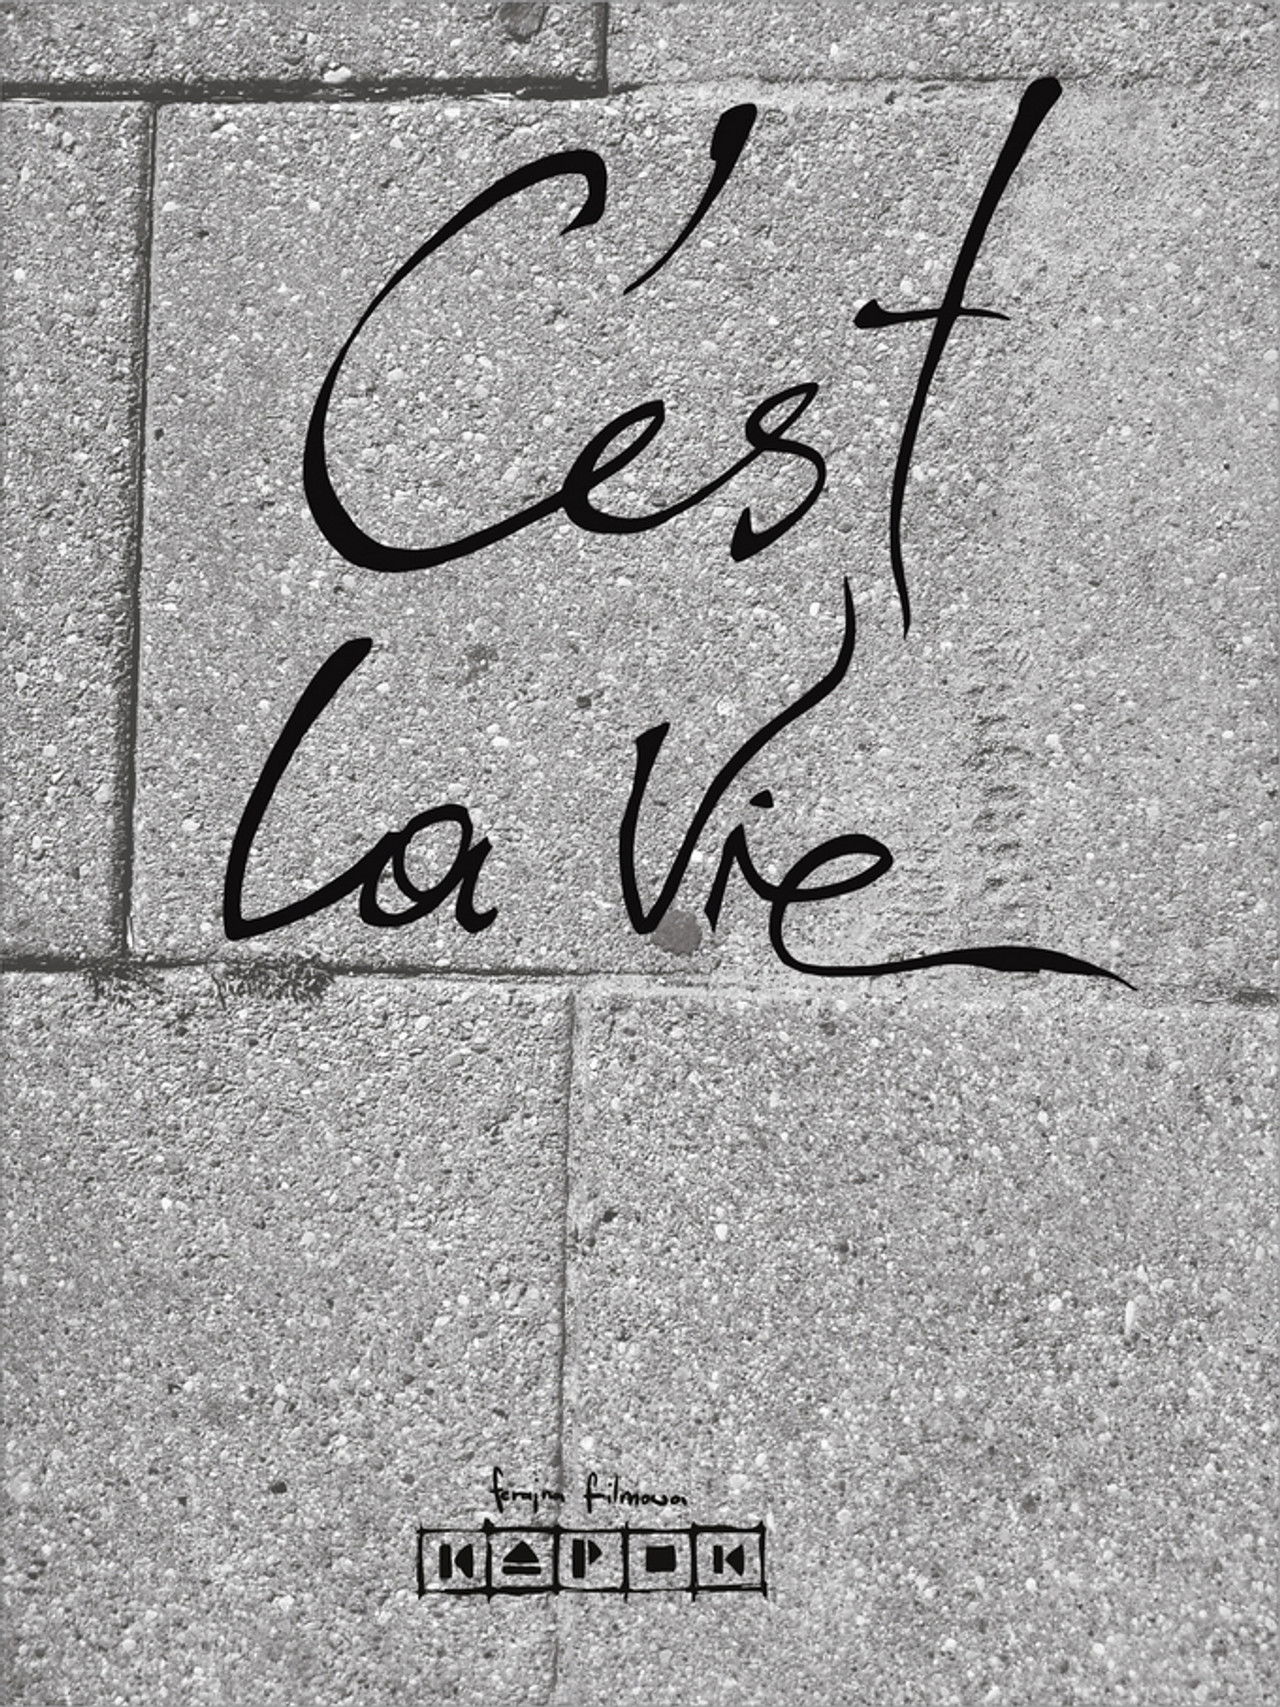 C'est
La Vie
ferajna filmowa